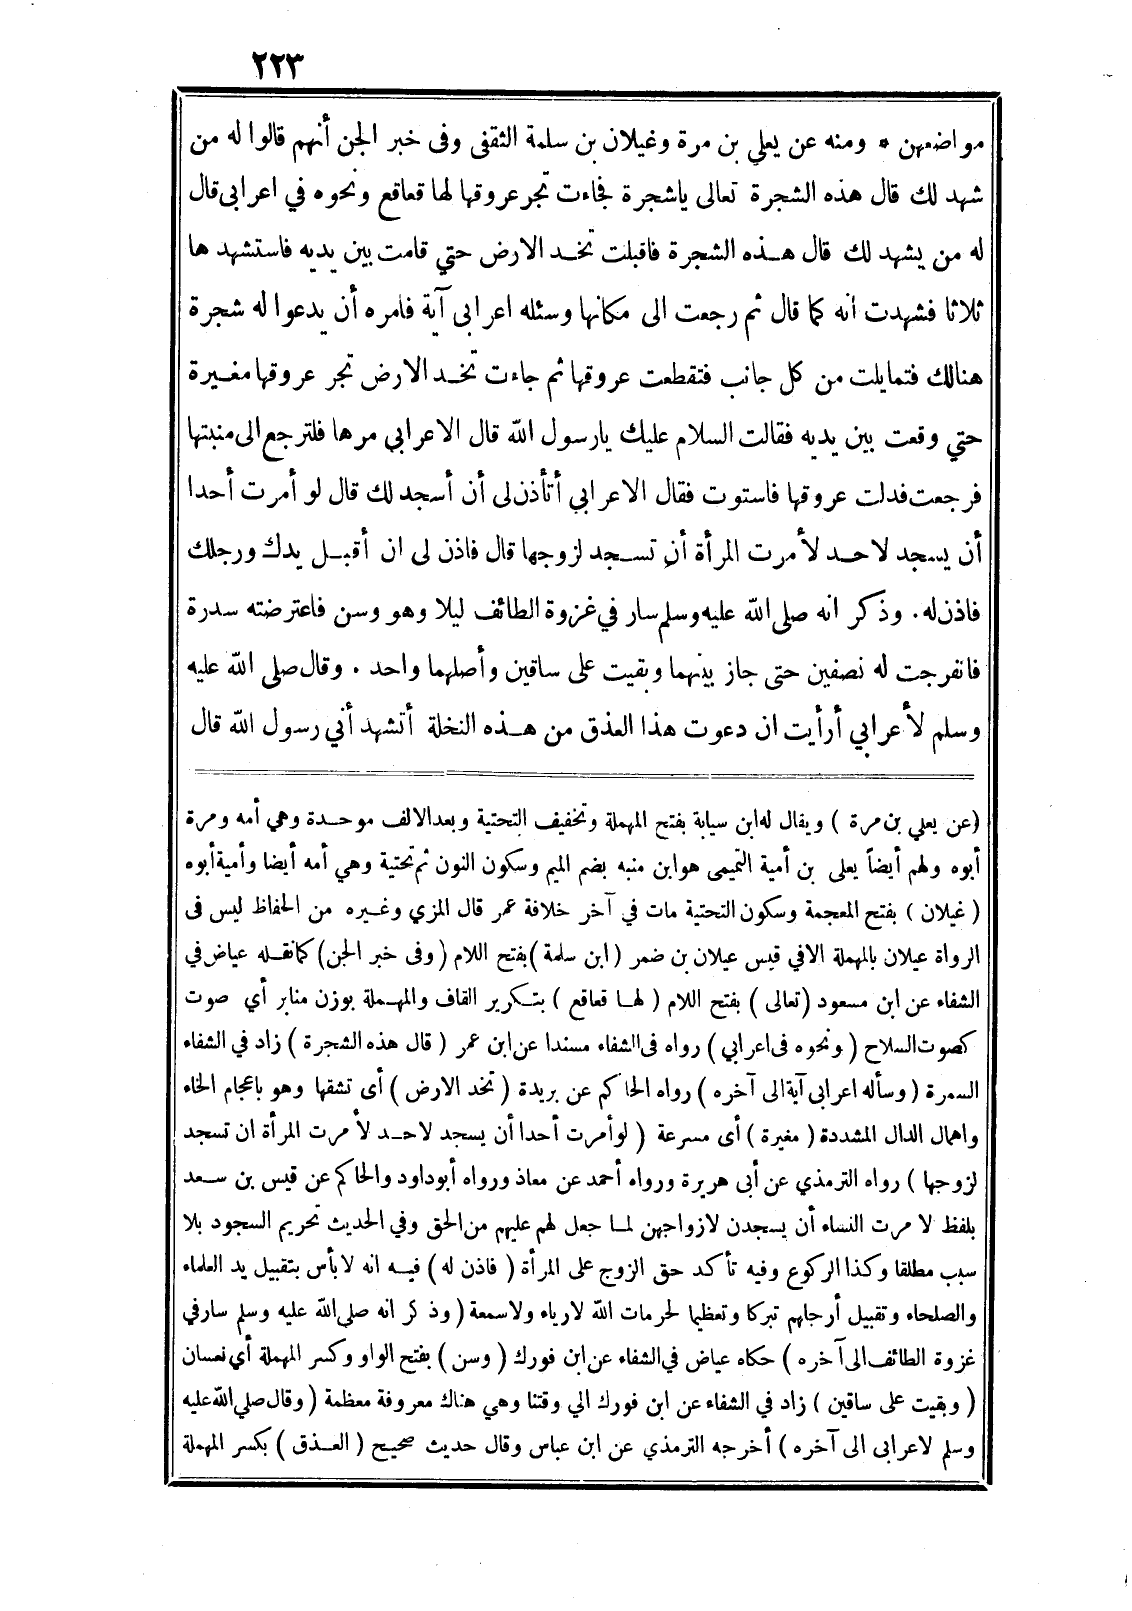 ٢٢٣
مواضعهن * ومنه عن يعلي بن مرة وغيلان بن سلمة الثقفى وفى خبر الجن أنهم قالوا له من
شهد لك قال هذه الشجرة تعالى ياشجرة فجاءت تجر عروقها لها قعاقع ونحوه في اعرابى قال
له من يشهد لك قال هذه الشجرة فاقبلت تخد الارض حتي قامت بين يديه فاستشهد ها
ثلاثا فشهدت انه كما قال ثم رجعت الى مكانها وسئله اعرابى آية فامره أن يدعوا له شجرة
هنالك فتمايلت من كل جانب فتقطعت عروقها ثم جاءت تخد الارض تجر عروقها مغيرة
حتي وقعت بين يديه فقالت السلام عليك يارسول الله قال الاعرابي مرها فلترجع الى منبتها
فرجعت فدلت عروقها فاستوت فقال الاعرابي أتأذن لى أن أسجد لك قال لو أمرت أحدا
أن يسجد لاحد لأمرت المرأة أن تسجد لزوجها قال فاذن لى ان أقبل يدك ورجلك
فاذن له . وذكر انه صلى الله عليه وسلم سار في غزوة الطائف ليلا وهو وسن فاعترضته سدرة
فانفرجت له نصفين حتى جاز بينهما وبقيت على ساقين وأصلهما واحد . وقال صلى الله عليه
وسلم لأعرابي أرأيت ان دعوت هذا العذق من هذه النخلة أتشهد أني رسول الله قال
(عن يعلي بن مرة ) ويقال له ابن سيابة بفتح المهملة وتخفيف التحتية وبعد الالف موحدة وهي أمه ومرة
أبوه ولهم أيضاً يعلى بن أمية التميمى هو ابن منبه بضم الميم وسكون النون ثم تحتية وهي أمه أيضا وأمية أبوه
( غيلان ) بفتح المعجمة وسكون التحتية مات في آخر خلافة عمر قال المزي وغيره من الحفاظ ليس فى
الرواة عيلان بالمهملة الا في قيس عيلان بن ضمر ( ابن سلمة ) بفتح اللام ( وفى خبر الجن ) كما نقله عياض في
الشفاء عن ابن مسعود ( تعالى ) بفتح اللام ( لها قعاقع ) بتكرير القاف والمهملة بوزن منابر أي صوت
كصوت السلاح ( ونحوه فى اعرابي ) رواه فى الشفاء مسندا عن ابن عمر ( قال هذه الشجرة ) زاد في الشفاء
السمرة ( وسأله اعرابى آية الى آخره ) رواه الحاكم عن بريدة ( تخد الارض ) أى تشقها وهو باعجام الخاء
واهمال الدال المشددة ( مغيرة ) أى مسرعة ( لو أمرت أحدا أن يسجد لاحد لأمرت المرأة ان تسجد
لزوجها ) رواه الترمذي عن أبى هريرة ورواه أحمد عن معاذ ورواه أبو داود والحاكم عن قيس بن سعد
بلفظ لامرت النساء أن يسجدن لازواجهن لما جعل لهم عليهم من الحق وفي الحديث تحريم السجود بلا
سبب مطلقا وكذا الركوع وفيه تأكد حق الزوج على المرأة ( فاذن له ) فيه انه لا بأس بتقبيل يد العلماء
والصلحاء وتقبيل أرجلهم تبركا وتعظيما لحرمات الله لارياء ولا سمعة ( وذكر انه صلى الله عليه وسلم سار في
غزوة الطائف الى آخره ) حكاه عياض في الشفاء عن ابن فورك ( وسن ) بفتح الواو وكسر المهملة أي نعسان
( وبقيت على ساقين ) زاد في الشفاء عن ابن فورك الي وقتنا وهي هناك معروفة معظمة ( وقال صلي الله عليه
وسلم لاعرابى الى آخره ) أخرجه الترمذي عن ابن عباس وقال حديث صحيح ( العذق ) بكسر المهملة